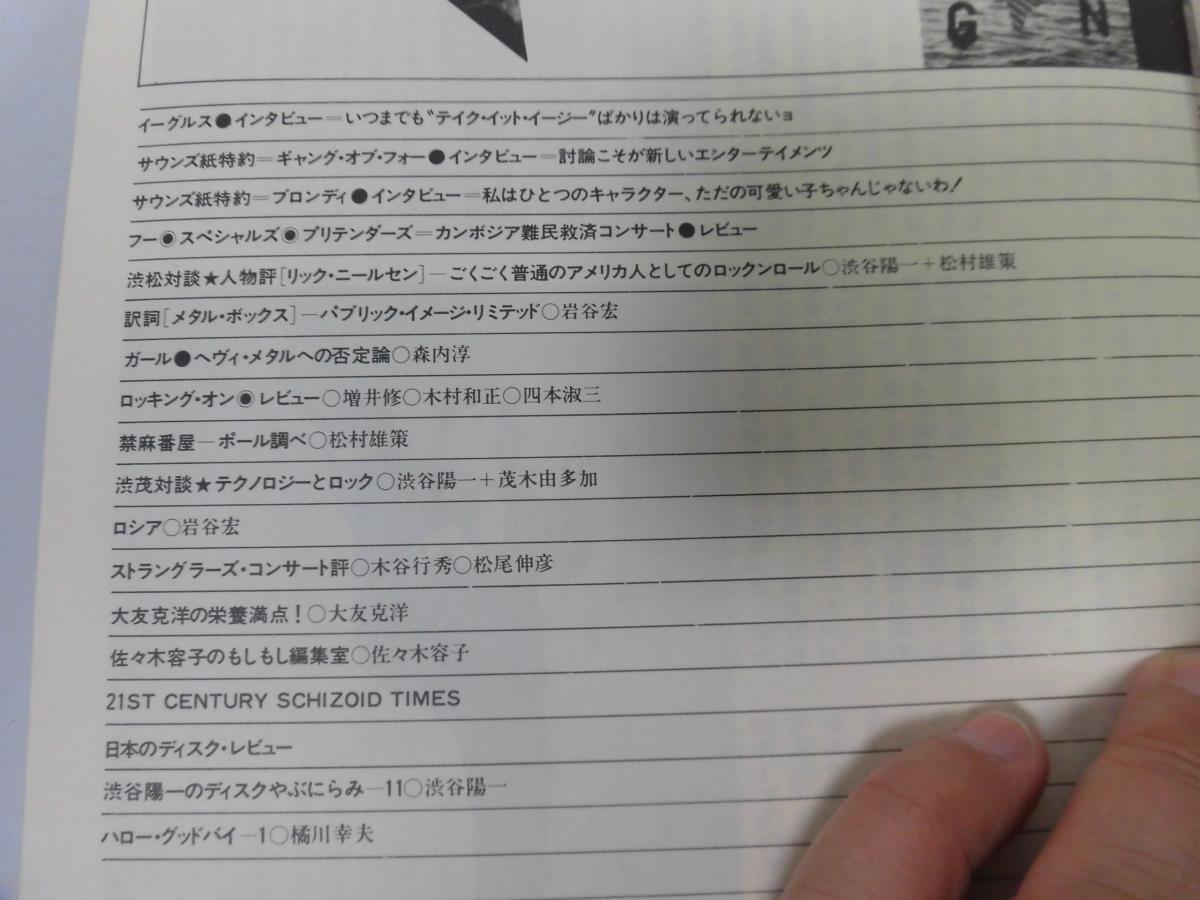 G N
イーグルス●インタビュー＝いつまでも“テイク・イット・イージー”ばかりは演ってられないョ
サウンズ紙特約＝ギャング・オブ・フォー●インタビュー＝討論こそが新しいエンターテイメンツ
サウンズ紙特約＝ブロンディ●インタビュー＝私はひとつのキャラクター、ただの可愛い子ちゃんじゃないわ！
フー◉スペシャルズ◉プリテンダーズ＝カンボジア難民救済コンサート●レビュー
渋松対談★人物評[リック・ニールセン]—ごくごく普通のアメリカ人としてのロックンロール○渋谷陽一＋松村雄策
訳詞[メタル・ボックス]—パブリック・イメージ・リミテッド○岩谷宏
ガール●ヘヴィ・メタルへの否定論○森内淳
ロッキング・オン◉レビュー○増井修○木村和正○四本淑三
禁麻番屋—ポール調べ○松村雄策
渋茂対談★テクノロジーとロック○渋谷陽一＋茂木由多加
ロシア○岩谷宏
ストラングラーズ・コンサート評○木谷行秀○松尾伸彦
大友克洋の栄養満点！○大友克洋
佐々木容子のもしもし編集室○佐々木容子
21ST CENTURY SCHIZOID TIMES
日本のディスク・レビュー
渋谷陽一のディスクやぶにらみ—11○渋谷陽一
ハロー・グッドバイ—1○橘川幸夫